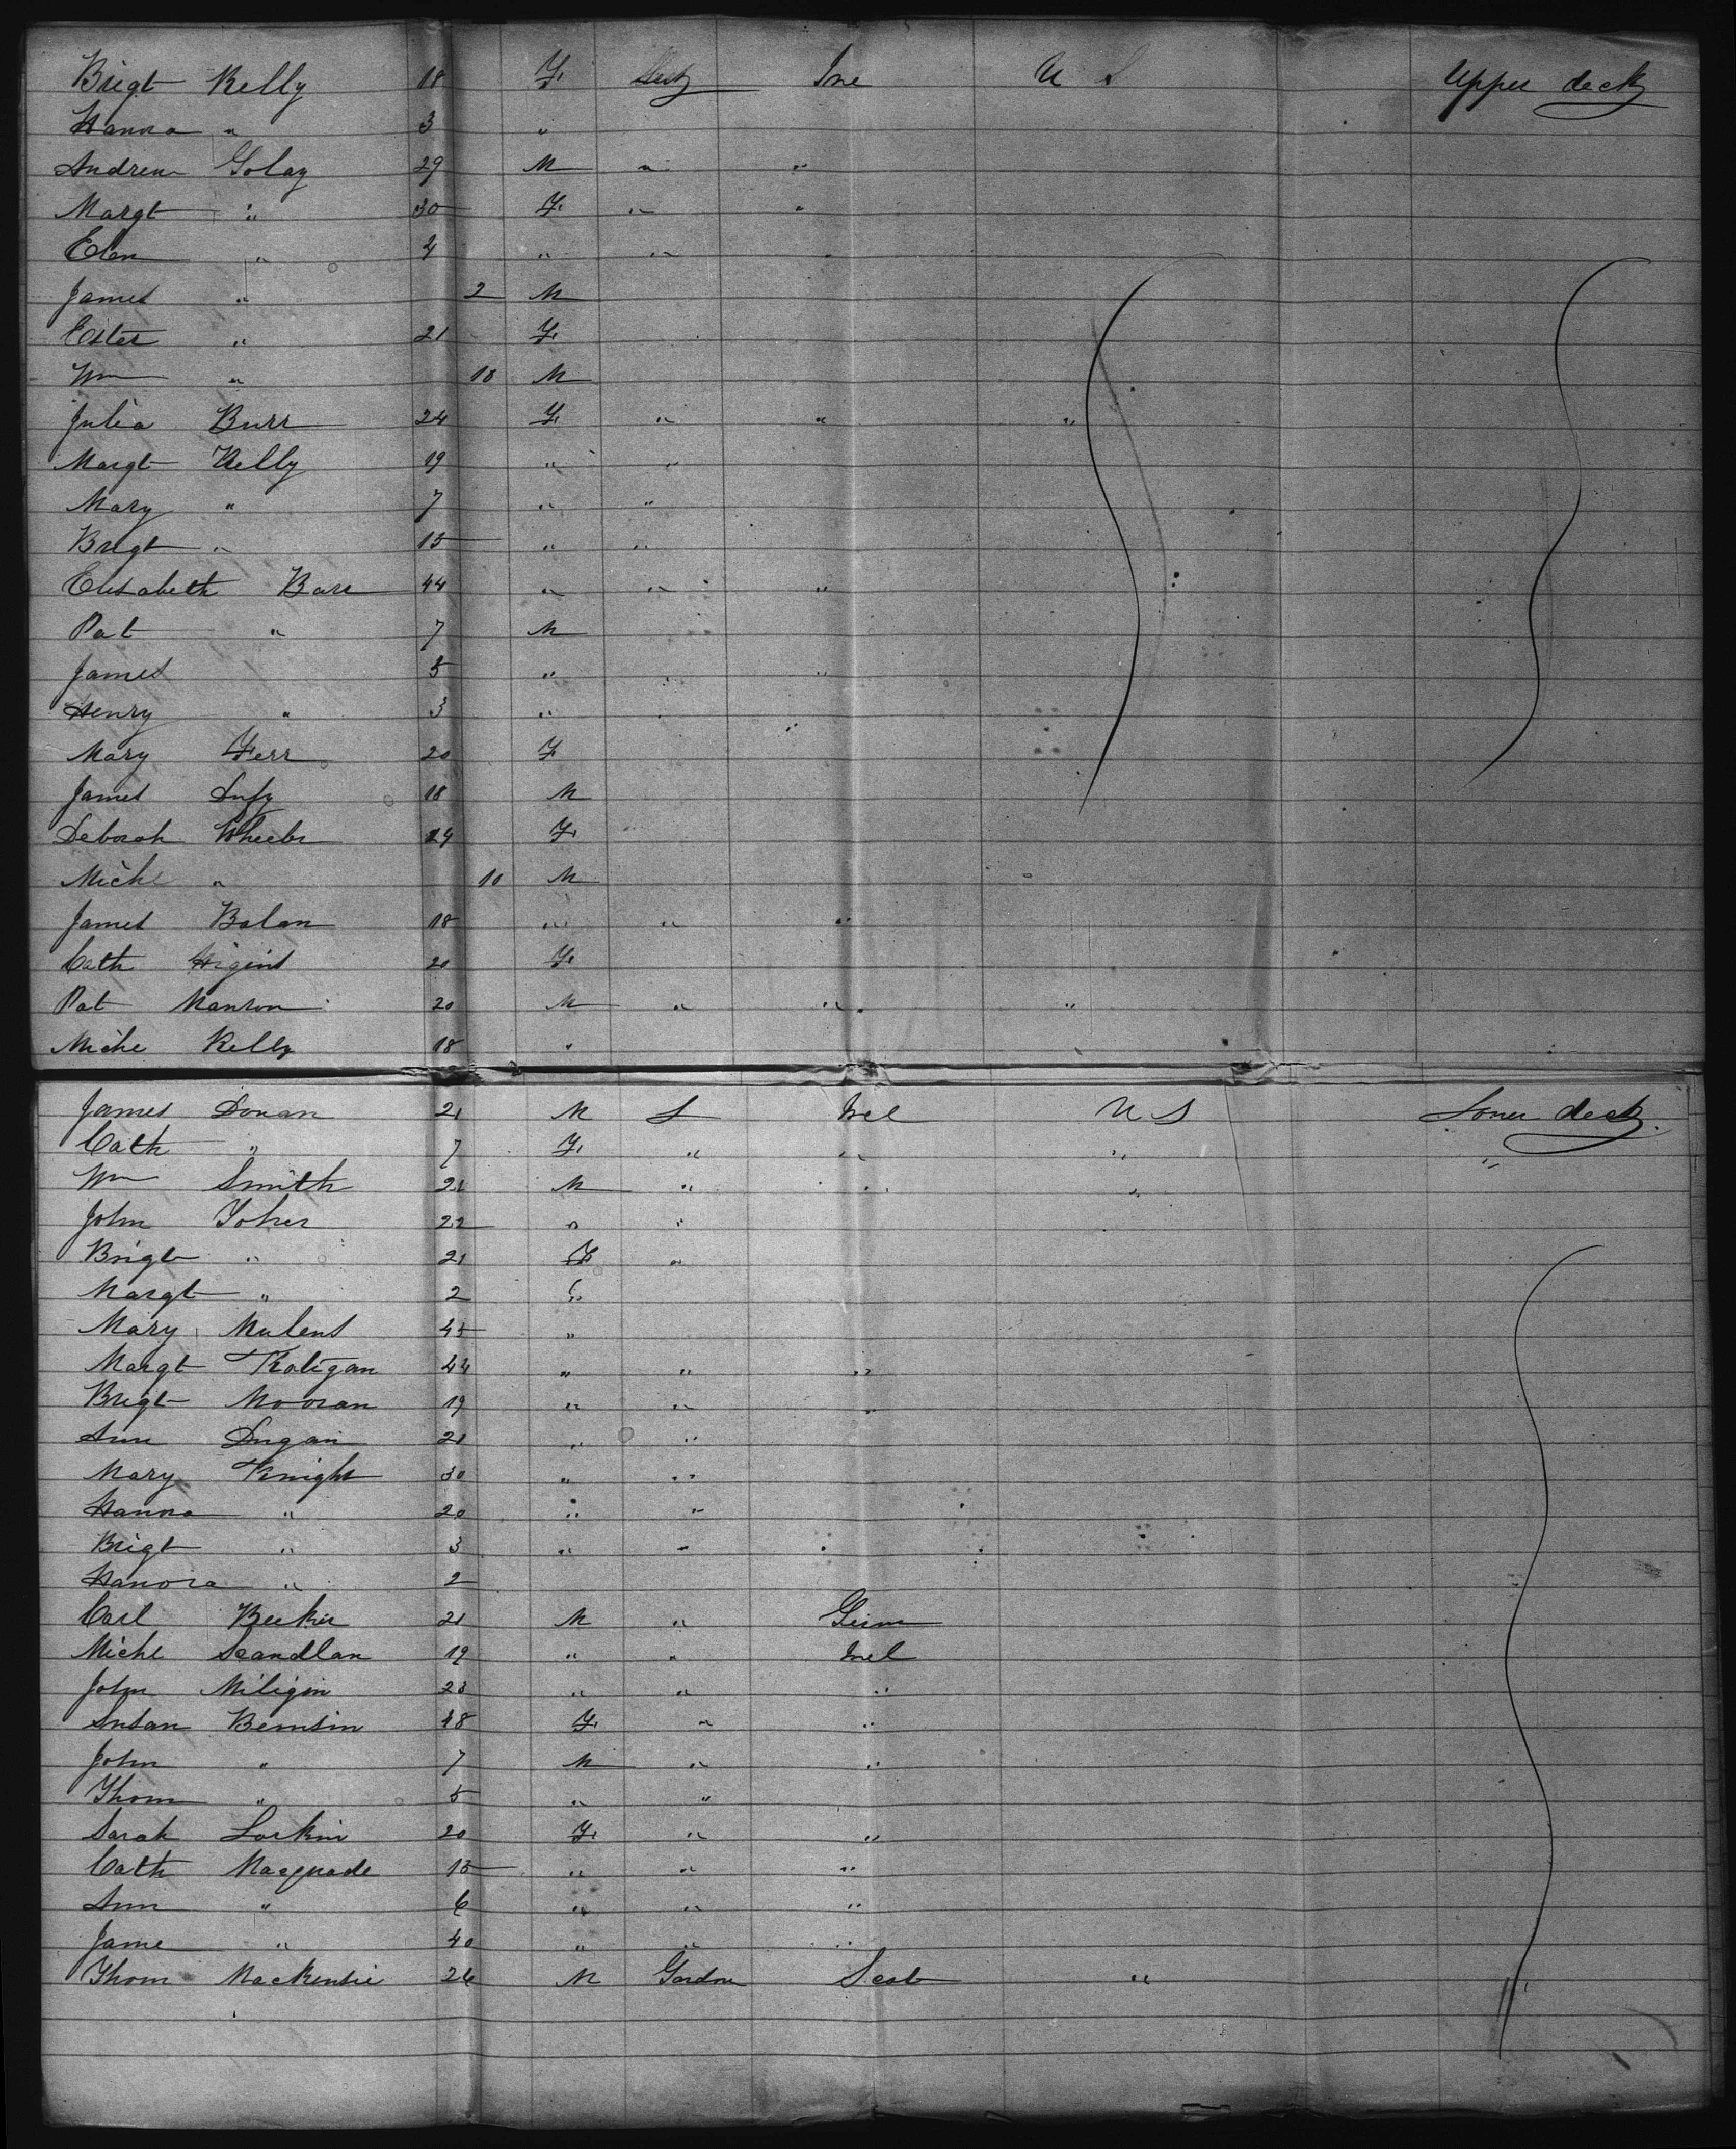 Brigt Kelly 18 F. Ire U S Upper deck
Hanna " 3 "
Andrew Golay 29 M " "
Margt " 30 F. " "
Elen " 4 " " "
James " 2 M
Ester " 21 F.
Wm " 10 M
Julia Burr 24 F. " " "
Margt Kelly 19 " "
Mary " 7 " "
Brigt " 15 " "
Elisabeth Barr 44 " " "
Pat " 7 M
James 5 " " "
Henry " 3 " "
Mary Ferr 20 F
James Dufy 18 M
Deborah Wheeler 24 F.
Michl " 10 M
James Bolan 18 " " "
Cath Higins 20 F.
Pat Manron 20 M " " "
Miche Kelly 18 "
James Donan 21 M S Irel U S Lower deck.
Cath " 7 F. " " " "
Wm Smith 21 M " " "
John Toher 22 " "
Brigt " 21 F. "
Margt " 2 "
Mary Mulens 45 "
Margt Kaligan 44 " " "
Brigt Mooran 19 " " "
Ann Dugan 21 " "
Mary Knight 30 " "
Hanna " 20 " "
Brigt " 3 " "
Hanora " 2
Carl Becker 21 M " Germ
Michl Scandlan 19 " " Irel
John Miligin 23 " " "
Susan Bernsin 48 F. " "
John " 7 M " "
Thom " 5 " "
Sarah Larkin 20 F. " "
Cath Macquade 15 " " "
Ann " 6 " " "
Jame " 40 " " "
Thom Mackensie 26 M Gardn Scot "